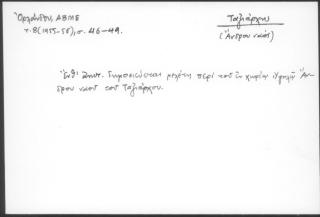 Ὀρλάνδου, ΑΒΜΕ
τ. 8 (1955-56), σ. 46-49.
Ταξιάρχου
(Ἄνδρου ναός)
Ἔνθ' ἀνωτ. δημοσιεύεται μελέτη περὶ τοῦ ἐν χωρίῳ Ὑψηλῇ Ἄν-
δρου ναοῦ τοῦ Ταξιάρχου.